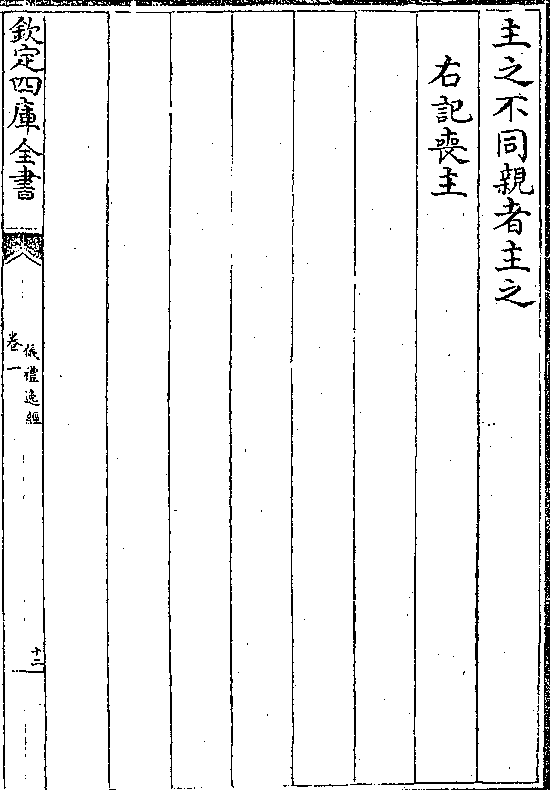 主之不同親者主之
右記喪主
欽定四庫全書
儀禮逸經
卷一
十二